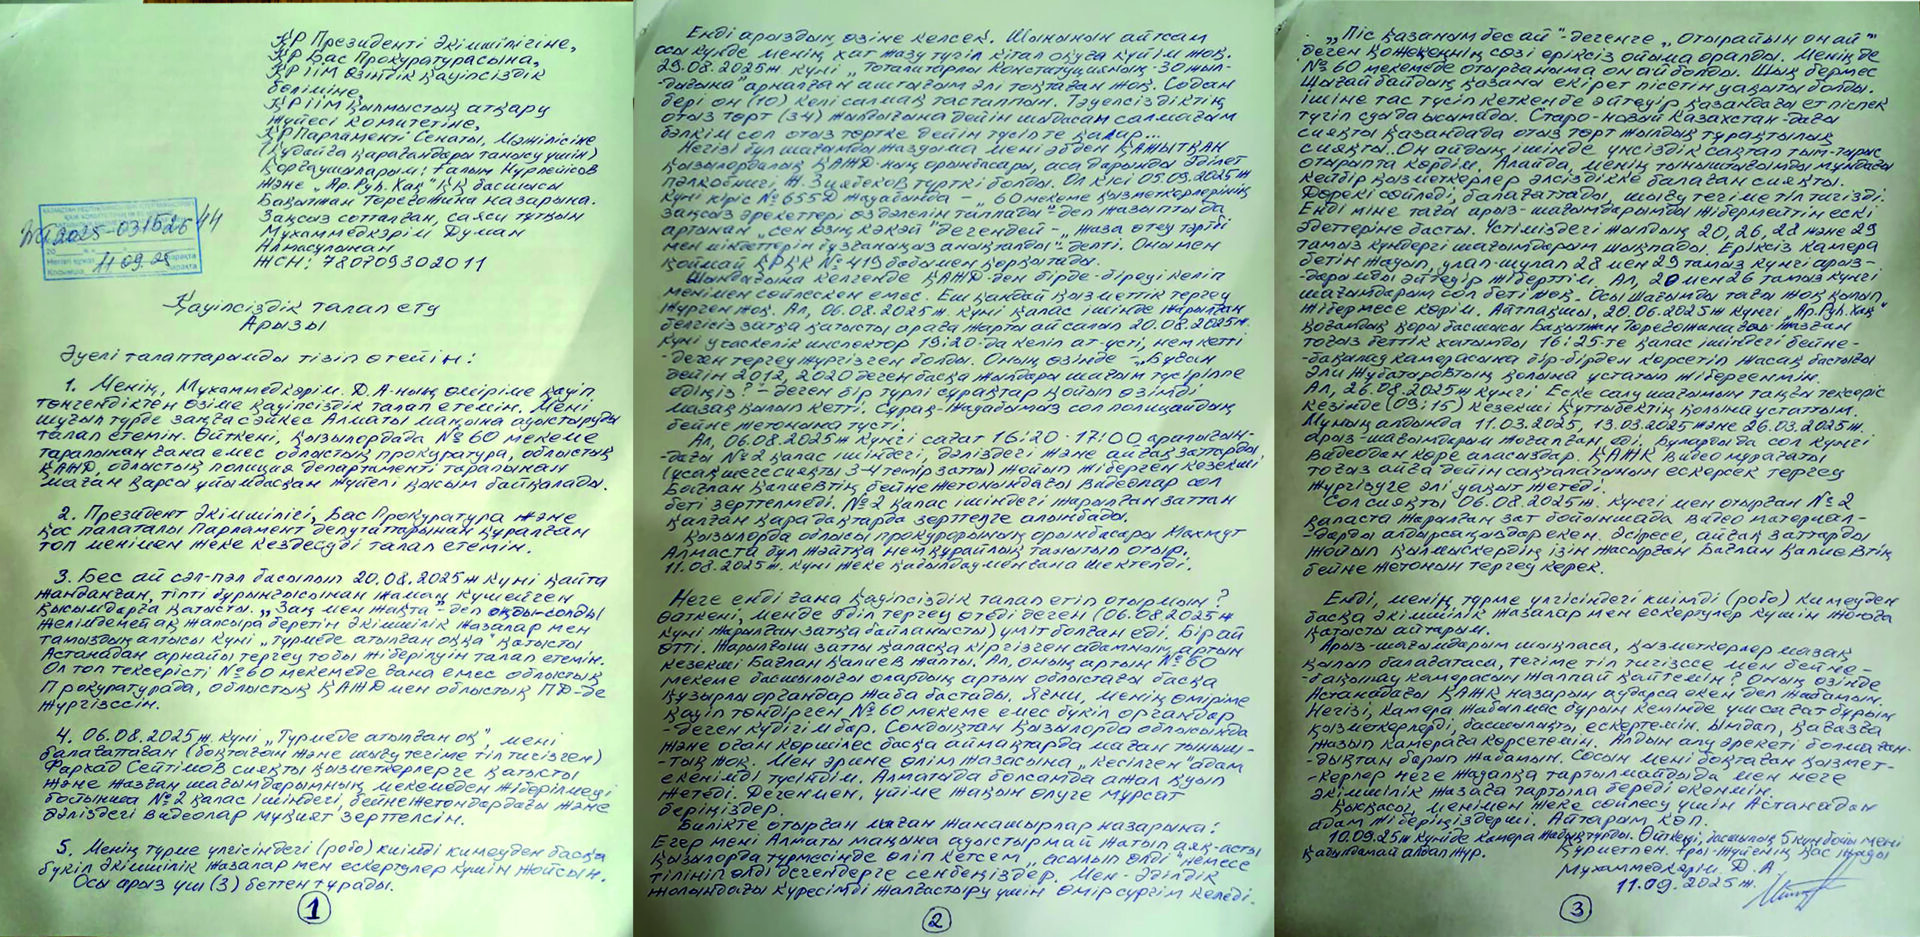 ҚР Президенті Әкімшілігіне,
ҚР Бас Прокуратурасына,
ҚР ІІМ Өзіндік Қауіпсіздік
бөліміне,
ҚР ІІМ Қылмыстық атқару
жүйесі комитетіне,
ҚР Парламенті Сенаты, Мәжілісіне
(Құдайға қарағандары танысу үшін)
Қорғаушыларым: Ғалым Нұрпейісов
және „Ар.Рух.Хақ" ҚҚ басшысы
Бақытжан Төреғожина назарына.
Заңсыз сотталған, саяси тұтқын
Мұхаммедкәрім Думан
Алмасұлынан
ЖСН: 780709302011
ЖТ2025-03152644
11 09. 25
Қауіпсіздік талап ету
Арызы
Әуелі талаптарымды тізіп өтейін:
1. Менің, Мұхаммедкәрім. Д.А-ның өміріме қауіп
төнгендіктен өзіме қауіпсіздік талап етемін. Мені
шұғыл түрде заңға сәйкес Алматы маңына ауыстыруды
талап етемін. Өйткені, Қызылордада №60 мекеме
тарапынан ғана емес облыстық прокуратура, облыстық
ҚАЖД, облыстық полиция департаменті тарапынан
маған қарсы ұйымдасқан жүйелі қысым байқалады.
2. Президент Әкімшілігі, Бас Прокуратура және
қос палаталы Парламент депутаттарынан құралған
топ менімен жеке кездесуді талап етемін.
3. Бес ай сәл-пәл басылып 20.08.2025ж күні қайта
жанданған, тіпті бұрынғысынан жаман күшейген
қысымдарға қатысты. „Заң мен жақта"-деп оңды-солды
желімдемей ақ жапсыра беретін әкімшілік жазалар мен
тамыздың алтысы күні „түрмеде атылған оққа" қатысты
Астанадан арнайы тергеу тобы жіберілуін талап етемін.
Ол топ тексерісті №60 мекемеде ғана емес облыстық
Прокуратурада, облыстық ҚАЖД мен облыстық ПД-де
жүргізссін.
4. 06.08.2025ж. күні „Түрмеде атылған оқ", мені
балағаттаған (боқтаған және шығу тегіме тіл тигізген)
Фархад Сейтімов сияқты қызметкерлерге қатысты
және жазған шағымдарымның мекемеден жіберілмеуі
бойынша №2 қапас ішіндегі, бейнежетондардағы және
дәліздегі видеолар мұқият зерттелсін.
5. Менің түрме үлгісіндегі (робо) киімді кимеуден басқа
бүкіл әкімшілік жазалар мен ескертулер күшін жойсын.
Осы арыз үш (3) беттен тұрады.
1
Енді арыздың өзіне келсек. Шынынын айтсам
осы күнде менің хат жазу түгіл кітап оқуға күйім жоқ.
29.08.2025ж күні „Тоталитарлы Конституцияның-30 жыл-
-дығына" арналған аштығым әлі тоқтаған жоқ. Содан
бері он (10) келі салмақ тасталтты. Тәуелсіздіктің
отыз төрт (34) жылдығына дейін шыдасам салмағым
бәлкім сол отыз төртке дейін түсіп те қалар...
Негізі бұл шағымды жазуыма мені әбден қажытқан
қызылордалық ҚАЖД-ның орынбасары, аса дарынды әділет
Ж. түрткі болды. Ол кісі 05.09.2025ж
күні кіріс №655D жауабында -„60 мекеме қызметкерлерінің
заңсыз әрекеттері өз дәлелін таппады" деп жазыпты да
артынан „сен өзің кәкәй" дегендей-„жаза өтеу тәртібі
мен міндеттерін бұзғаныңыз анықталды"-депті. Онымен
қоймай ҚРҚК №419 бабымен қорқытады.
Шындығына келгенде ҚАЖД-ден бірде-біреуі келіп
менімен сөйлескен емес. Еш қандай қызметтік тергеу
жүрген жоқ. Ал, 06.08.2025ж. күні қапас ішінде жарылған
белгісіз затқа қатысты арада жарты ай салып 20.08.2025ж.
күні учаскелік инспектор 19:20-да келіп ат-үсті, немкетті
-деген тергеу жүргізген болды. Оның өзінде -„Бұған
дейін 2012, 2020 деген басқа жылдары шағым түсіріппе
едіңіз?"-деген бір түрлі сұрақтар қойып өзімді
мазақ қылып кетті. Сұрақ-жауабымыз сол полицайдың
бейне жетонына түсті.
Ал, 06.08.2025ж күнгі сағат 16:20-17:00 аралығын-
-дағы №2 қапас ішіндегі, дәліздегі және айғақ заттарды,
(ұсақ шеге сияқты 3-4 темір затты) жойып жіберген кезекші
Бағлан Қалиевтің бейнежетонындағы видеолар сол
беті зерттелмеді. №2 қапас ішіндегі жарылған заттан
қалған қара дақтар да зерттеуге алынбады.
Қызылорда облысы прокурорының орынбасары Махмут
Алмас та бұл жәйтқа немқұрайлық танытып отыр.
11.08.2025ж. күні жеке қабылдаумен ғана шектелді.
Неге енді ғана қауіпсіздік талап етіп отырмын?
Өйткені, менде әділ тергеу өтеді деген (06.08.2025ж
күні жарылған затқа байланысты) үміт болған еді. Бір ай
өтті. Жарылғыш затты қапасқа кіргізген адамның артын
кезекші Бағлан Қалиев жапты. Ал, оның артын №60
мекеме басшылығы олардың артын облыстағы басқа
құзырлы органдар жаба бастады. Яғни, менің өміріме
қауіп төндірген №60 мекеме емес бүкіл органдар
-деген күдігім бар. Сондықтан Қызылорда облысында
және оған көршілес басқа аймақтарда маған тыным-
-тық жоқ. Мен әрине өлім жазасына „кесілген" адам
екенімді түсіндім. Алматыда болсам да ажал қуып
жетеді. Дегенмен, үйіме жақын өлуге мұрсат
беріңіздер.
Билікте отырған маған жанашырлар назарына:
Егер мені Алматы маңына ауыстырмай жатып аяқ-асты
Қызылорда түрмесінде өліп кетсем „асылып өлді" немесе
тілініп өлді дегендерге сенбеңіздер. Мен-әділдік
жолындағы күресімді жалғастыру үшін өмір сүргім келеді.
2
„Піс қазаным бес ай"-дегенге „Отырайын он ай"
деген Қожекеңнің сөзі еріксіз ойыма оралды. Менің де
№60 мекемеде отырғаныма он ай болды. Шық бермес
Шығайбайдың қазаны екі рет пісетін уақыты болды.
Ішіне тас түсіп кеткенде әйтеуір қазандағы ет піспек
түгіл суы да ысымады. Старо-новый Казахстан-дағы
сияқты қазандада отыз төрт жылдық тұрақтылық
сияқты.. Он айдың ішінде үнсіздік сақтап тым-тырыс
отырып та көрдім. Алайда, менің тыныштығымды мұндағы
кейбір қызметкерлер әлсіздікке балаған сияқты.
Дөрекі сөйледі, балағаттады, шығу тегіме тіл тигізді.
Енді міне тағы арыз-шағымдарымды жібермейтін ескі
әдеттеріне басты. Үстіміздегі жылдың 20, 26, 28 және 29
тамыз күндері шағымдарым шықпады. Еріксіз камера
бетін жауып, улап-шулап 28 мен 29 тамыз күнгі арыз-
-дарымды әйтеуір жіберттім. Ал, 20 мен 26 тамыз күнгі
шағымдарым сол беті жоқ. Осы шағымды тағы жоқ қылып,
жібермесе көрім. Айтпақшы, 20.06.2025ж күнгі „Ар.Рух.Хақ"
қоғамдық қоры басшысы Бақытжан Төреғожинаға жазған
тоғыз беттік хатымды 16:25-те қапас ішіндегі бейне-
-бақылау камерасына бір-бірден көрсетіп жасақ бастығы
Әли Жұбатаровтың қолына ұстатып жібергенмін.
Ал, 26.08.2025ж күнгі Еске салу шағымын таңғы тексеріс
кезінде (09:15) кезекші Құттыбектің қолына ұстаттым.
Мұның алдында 11.03.2025, 13.03.2025ж және 26.03.2025ж.
арыз-шағымдарым жоғалған еді. Бұларды да сол күнгі
видеодан көре аласыздар. ҚАЖК видео мұрағаты
тоғыз айға дейін сақталатынын ескерсек тергеу
жүргізуге әлі уақыт жетеді.
Сол сияқты 06.08.2025ж. күнгі мен отырған №2
қапаста жарылған зат бойынша да видео материал-
-дарды алдырсаңыздар екен. Әсіресе, айғақ заттарды
жойып қылмыскердің ізін жасырған Бағлан Қалиевтің
бейне жетонын тергеу керек.
Енді, менің түрме үлгісіндегі киімді (робо) кимеуден
басқа әкімшілік жазалар мен ескертулер күшін жоюға
қатысты айтарым.
Арыз-шағымдарым шықпаса, қызметкерлер мазақ
қылып балағатаса, тегіме тіл тигізссе мен бейне-
-бақылау камерасын жаппай қайтемін? Оның өзінде
Астанадағы ҚАЖК назарын аударса екен деп жабамын.
Негізі, камера жабылмас бұрын кемінде үш сағат бұрын
қызметкерлерді, басшылықты, ескертемін. Ымдап, қағазға
жазып камераға көрсетемін. Алдын алу әрекеті болмаған-
-дықтан барып жабамын. Сосын мені боқтаған қызмет-
-керлер неге жазаға тартылмайды да мен неге
әкімшілік жазаға тартыла береді екенмін.
Қысқасы, менімен жеке сөйлесу үшін Астанадан
адам жіберіңіздерші. Айтарым көп.
10.09.25ж күні де камера жабық тұрды. Өйткені, басшылық 5 күн бойы мені
қабылдамай алдап жүр.
Құрметпен, -Ітрі-жүйенің қас жауы
Мұхаммедкәрім. Д.А.
11.09.2025ж.
3